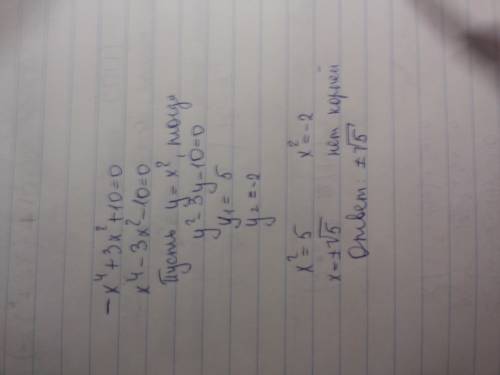 -x⁴+3x²+10=0
x⁴-3x²-10=0
Пусть y=x², тогда
y²-3y-10=0
y₁=5
y₂=-2
x²=5 x²=-2
x=±√5 нет корней
Ответ: ±√5